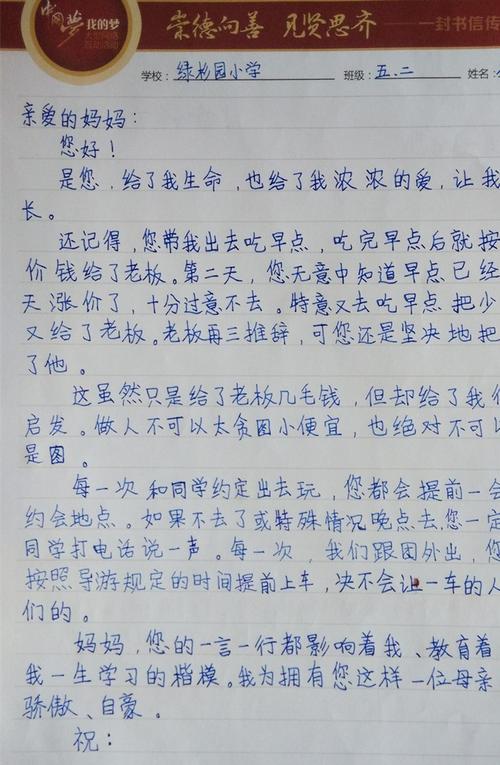 中国梦 我的梦
崇德向善 见贤思齐
一封书信传
学校: 绿杉园小学 班级: 五.二 姓名:
亲爱的妈妈:
您好!
是您,给了我生命,也给了我浓浓的爱,让我
长。
还记得,您带我出去吃早点,吃完早点后就按
价钱给了老板。第二天,您无意中知道早点已经
天涨价了,十分过意不去。特意又去吃早点把少
又给了老板。老板再三推辞,可您还是坚决地把
了他。
这虽然只是给了老板几毛钱,但却给了我们
启发。做人不可以太贪图小便宜,也绝对不可以
是图。
每一次和同学约定出去玩,您都会提前一会
约会地点。如果不去了或特殊情况晚点去,您一定
同学打电话说一声。每一次,我们跟团外出,您
按照导游规定的时间提前上车,决不会让一车的人
们的。
妈妈,您的一言一行都影响着我、教育着
我一生学习的楷模。我为拥有您这样一位母亲
骄傲、自豪。
祝: